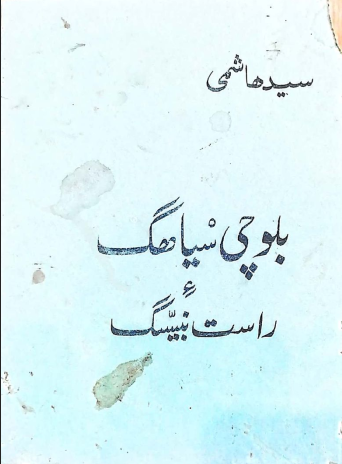 سید ھاشمی
بلوچی سیاھگ
ءِ
راست نبیسگ